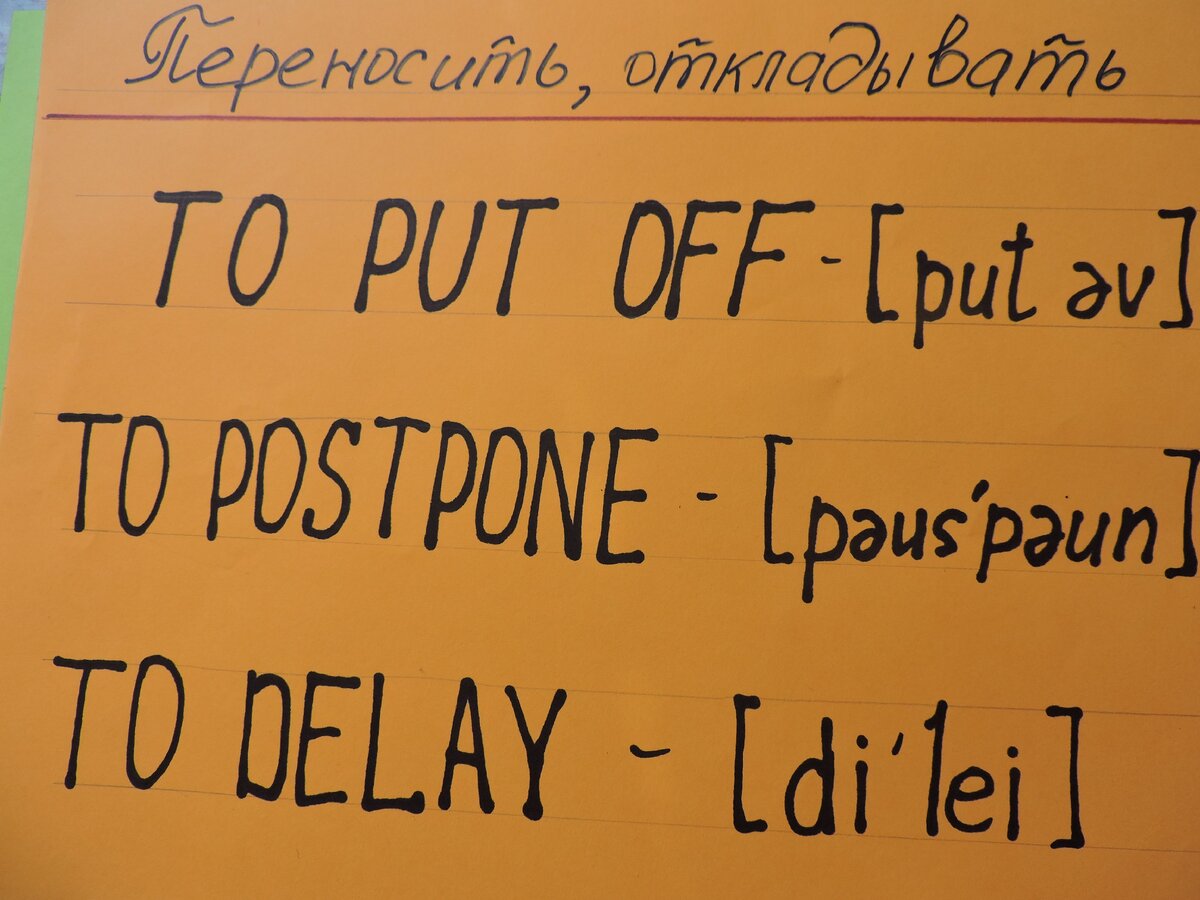 Переносить, откладывать
TO PUT OFF - [put əv]
TO POSTPONE - [pəus'pəun]
TO DELAY - [di'lei]